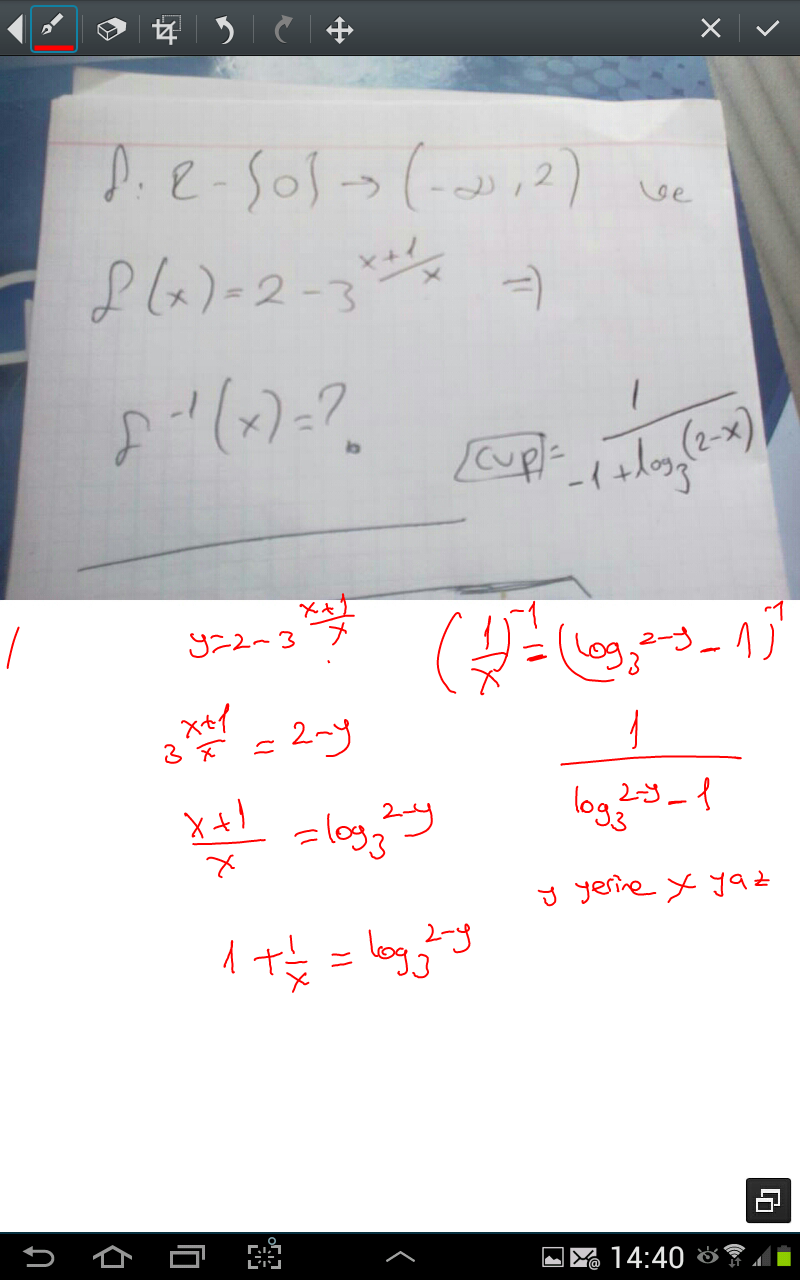 f: R - {0} → (-∞, 2) ve
f(x) = 2 - 3^((x+1)/x) ⇒
f⁻¹(x) = ?
cvp = 1/(-1 + log₃(2-x))
y = 2 - 3^((x+1)/x)
3^((x+1)/x) = 2-y
(x+1)/x = log₃^(2-y)
1 + 1/x = log₃^(2-y)
(1/x)⁻¹ = (log₃^(2-y) - 1)⁻¹
1/(log₃^(2-y) - 1)
y yerine x yaz
14:40